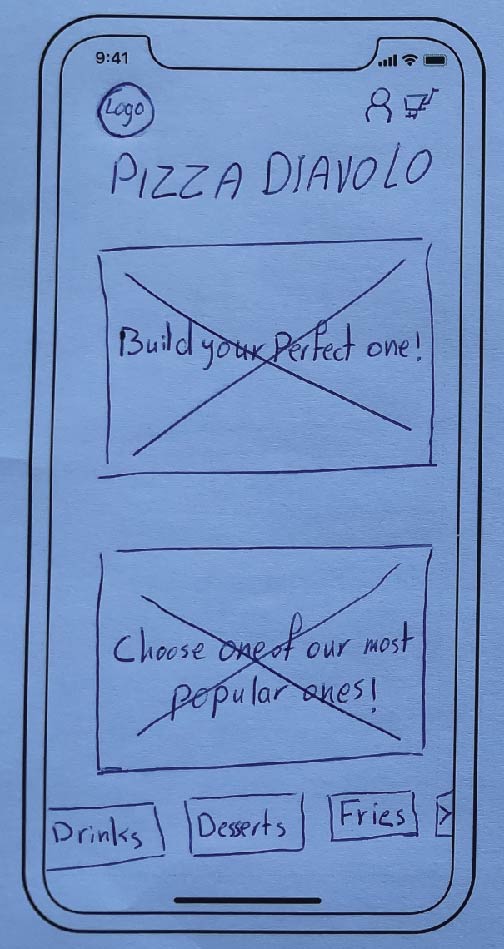 9:41
Logo
PIZZA DIAVOLO
Build your Perfect one!
Choose one of our most
popular ones!
Drinks
Desserts
Fries
>